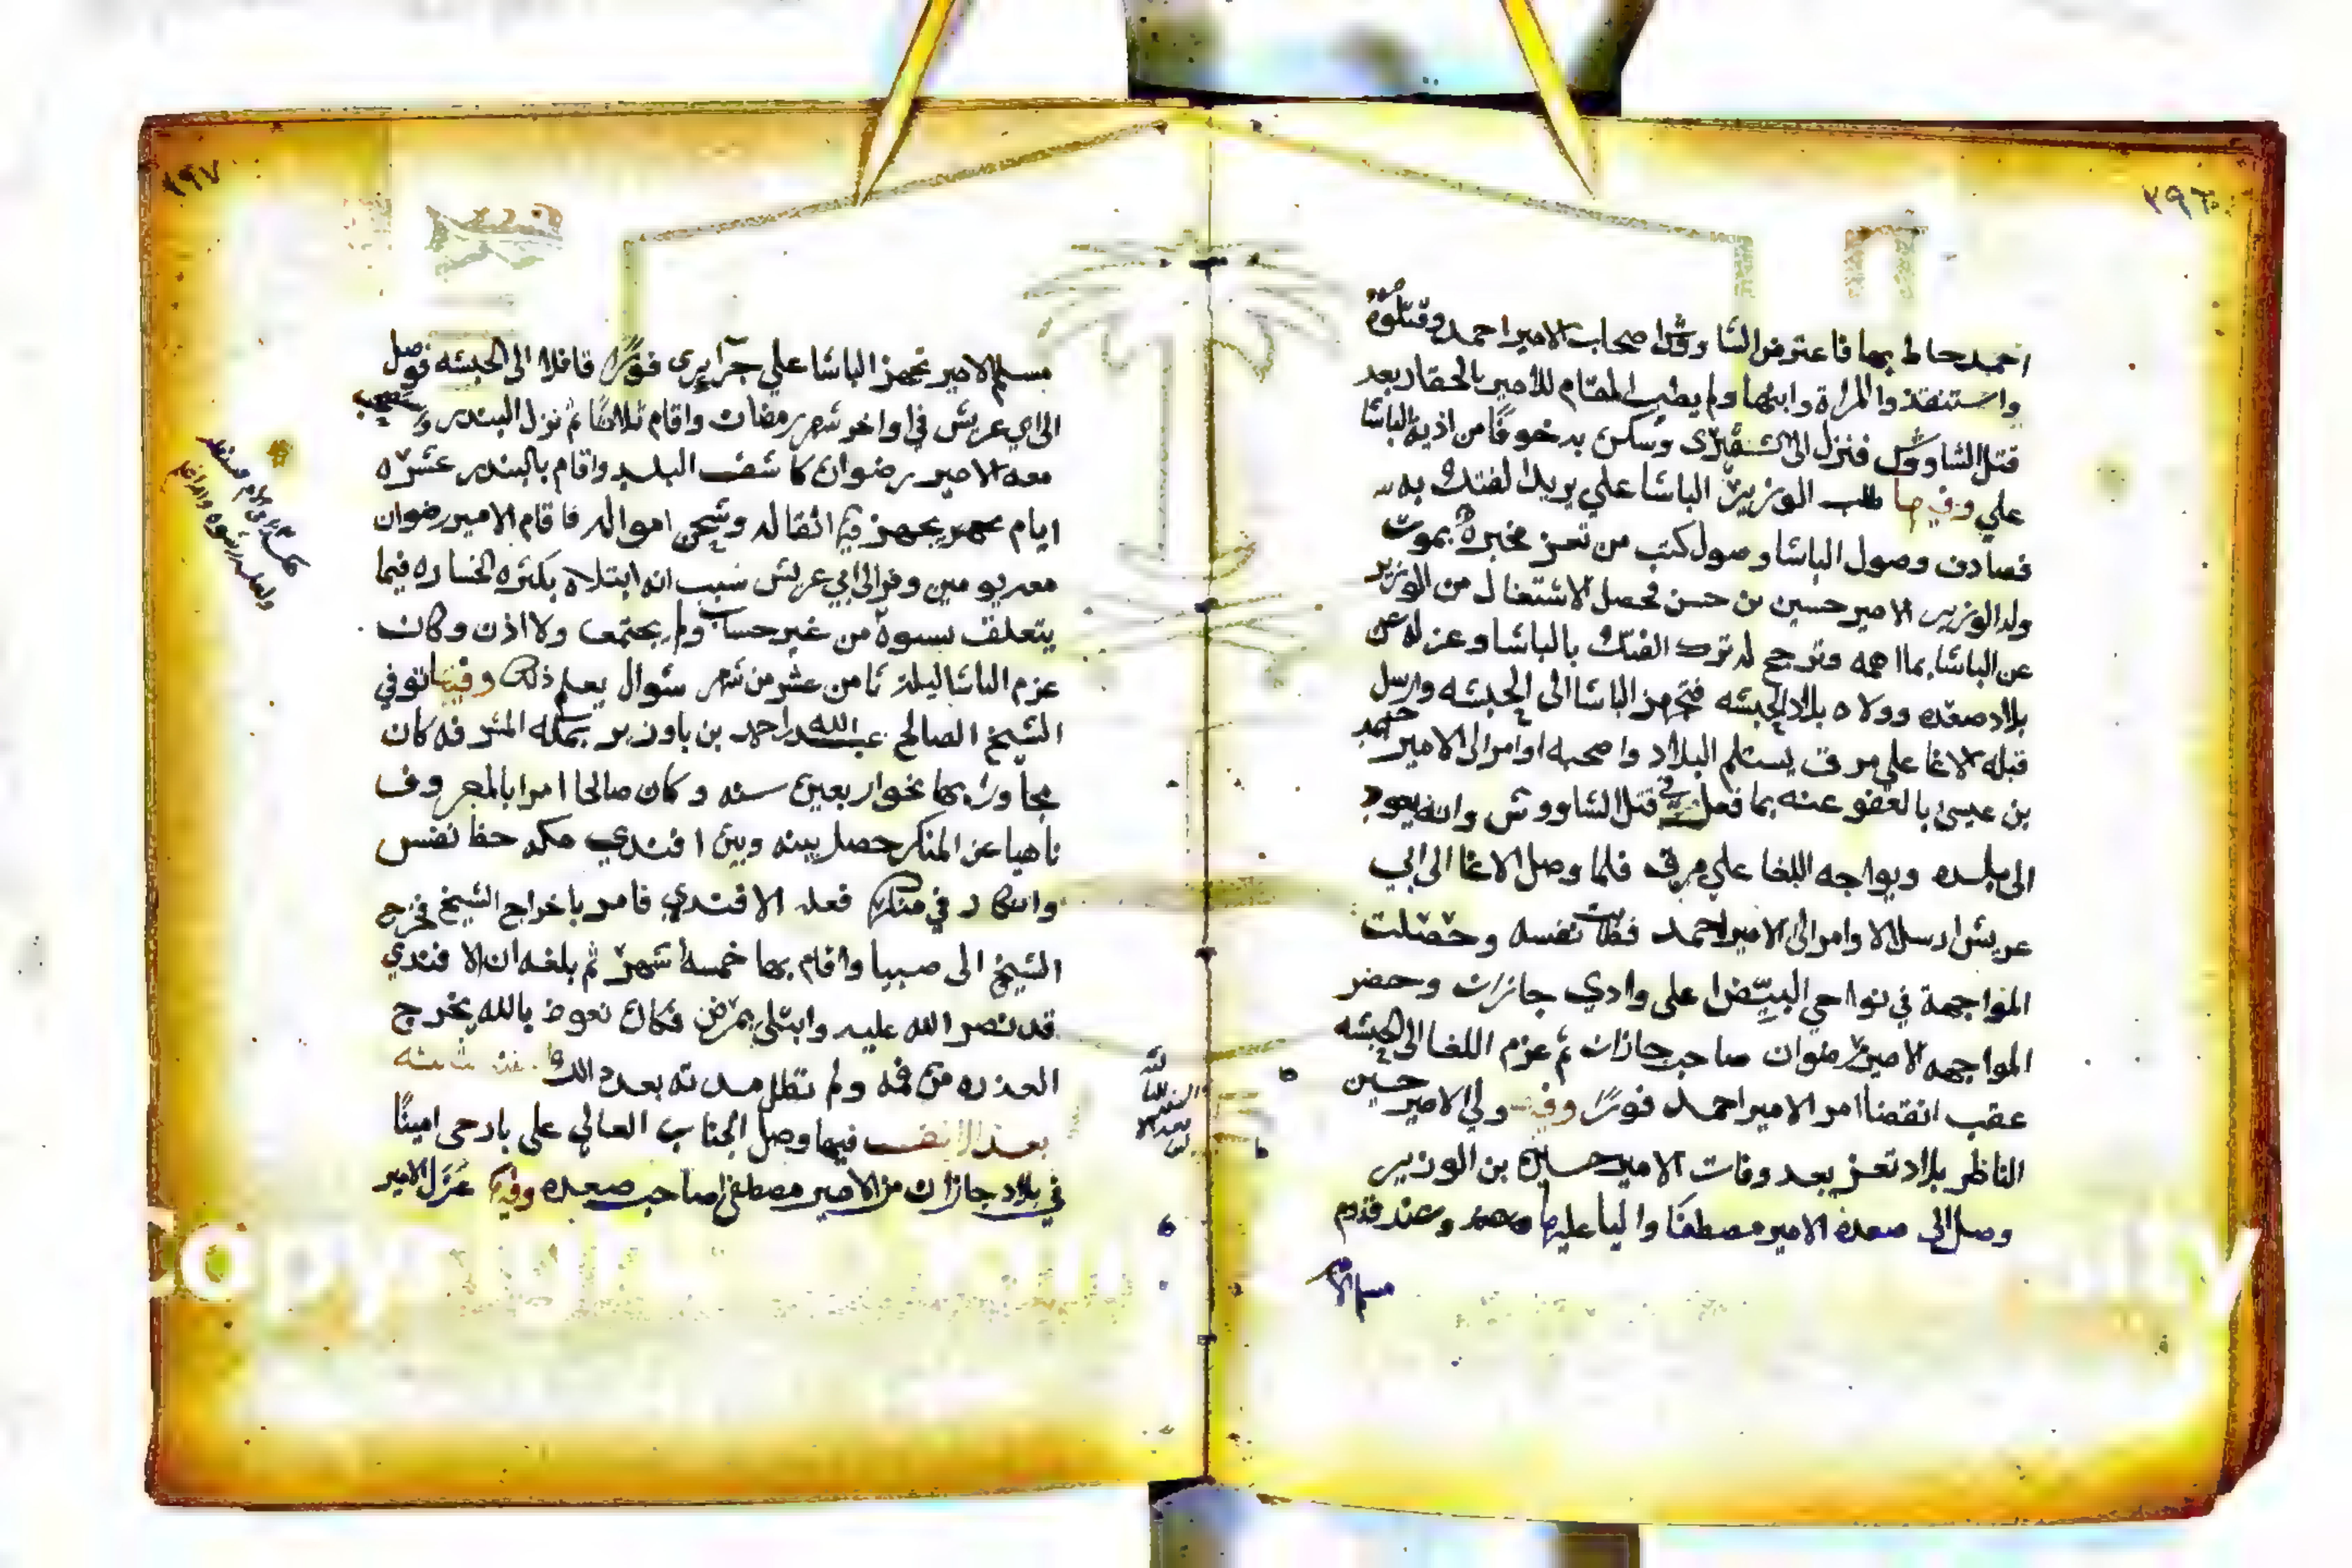 ٢٩٦
احمد حاط بها فاعترض الشاووش اصحاب الامير احمد وقتلوه
واستنقذوا المراة وابنها ولم يطب المقام للامير بالحقار بعد
قتل الشاووش فنزل الى الشقيري وسكن به خوفا من اذية الباشا
علي وفيها طلب الوزير الباشا علي يريد الفتك به
فصادف وصول الباشا وصول كتب من تعز مخبرة بموت
ولد الوزير الامير حسين بن حسن فحصل الاشتغال من الوزير
عن الباشا بما اهمه وترجح له ترك الفتك بالباشا وعزله عن
بلاد صعده وولاه بلاد الحبشه فتجهز الباشا الى الحبشه وارسل
قبله الاغا علي مرق يستلم البلاد واصحبه اوامر الى الامير احمد
بن عيسى بالعفو عنه بما فعل في قتل الشاووش وانه يعود
الى بلده ويواجه اللغا علي مرق فلما وصل الاغا الى ابي
عريش ارسل الاوامر الى الامير احمد فطابت نفسه وحصلت
المواجهة في نواحي البيض اعلى وادي جازان وحضر
المواجهه الامير رضوان صاحب جازان ثم عزم اللغا الى الحبشه
عقب انقضا امر الامير احمد فورا وفيها ولي الامير حسين
الناظر بلاد تعز بعد وفات الامير حسين بن الوزير
وصل الى صعده الامير مصطفا واليا عليها وعند قدوم
مسلم الا
٢٩٧
مسلم الامير تجهز الباشا علي جزايري فورا قافلا الى الحبشه فوصل
الى ابي عريش في اواخر شهر رمضان واقام ثلاثا ثم نزل البندر
معه الامير رضوان كاشف البلد واقام بالبندر عشرة
ايام يجهز فيها اثقاله وشحن امواله فاقام الامير رضوان
معه يومين وفر الى ابي عريش سبب انه ابتلاه بكثره الخساره فيما
يتعلق بسوه من غير حساب ولم يجتمع ولا اذن وكان
عزم الباشا ليلة ثامن عشر من شهر شوال بعد ذلك وفيها توفي
الشيخ الصالح عبدالله احمد بن باوزير بمكه المشرفه كان
مجاورا بها نحو اربعين سنه وكان صالحا امرا بالمعروف
ناهيا عن المنكر حصل بينه وبين افندي مكه حظ نفس
وانكار في منكر فعله الافندي فامر باخراج الشيخ فخرج
الشيخ الى صبيا واقام بها خمسة اشهر ثم بلغه ان الافندي
قد نصر الله عليه وابتلي بمرض فكان نعوذ بالله يخرج
العذره من فمه ولم تطل مدته بعد ذالك سنه
بعد الالف فيها وصل الجناب العالي علي بارحى امينا
في بلاد جازان من الامير مصطفى صاحب صعده وفيها عزل الامير